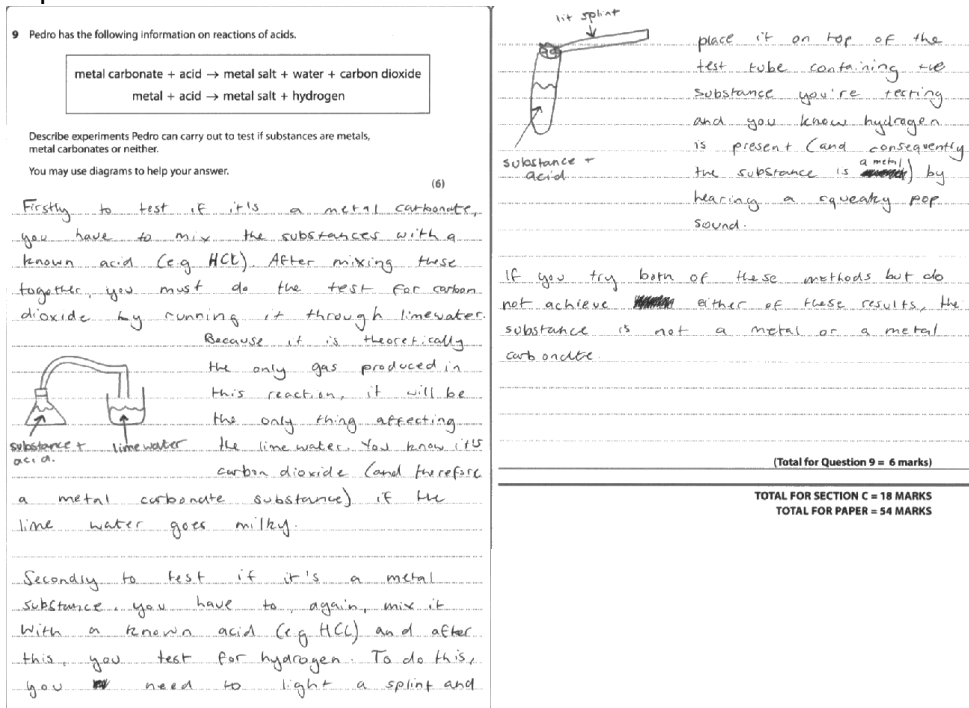 9 Pedro has the following information on reactions of acids.
metal carbonate + acid → metal salt + water + carbon dioxide
metal + acid → metal salt + hydrogen
Describe experiments Pedro can carry out to test if substances are metals,
metal carbonates or neither.
You may use diagrams to help your answer.
(6)
Firstly to test if it's a metal carbonate,
you have to mix the substances with a
known acid (e.g HCl). After mixing these
together, you must do the test for carbon
dioxide by running it through limewater.
Because it is theoretically
the only gas produced in
this reaction, it will be
the only thing affecting
the lime water. You know it's
carbon dioxide (and therefore
substance + acid.
limewater
a metal carbonate substance) if the
lime water goes milky.
Secondly to test if it's a metal
substance, you have to, again, mix it
with a known acid (eg HCl) and after
this, you test for hydrogen. To do this,
you need to light a splint and
lit splint
place it on top of the
test tube containing the
substance you're testing
and you know hydrogen
is present (and consequently
the substance is a metal) by
hearing a squeaky pop
sound.
substance +
acid
If you try both of these methods but do
not achieve either of these results, the
substance is not a metal or a metal
carbonate.
(Total for Question 9 = 6 marks)
TOTAL FOR SECTION C = 18 MARKS
TOTAL FOR PAPER = 54 MARKS